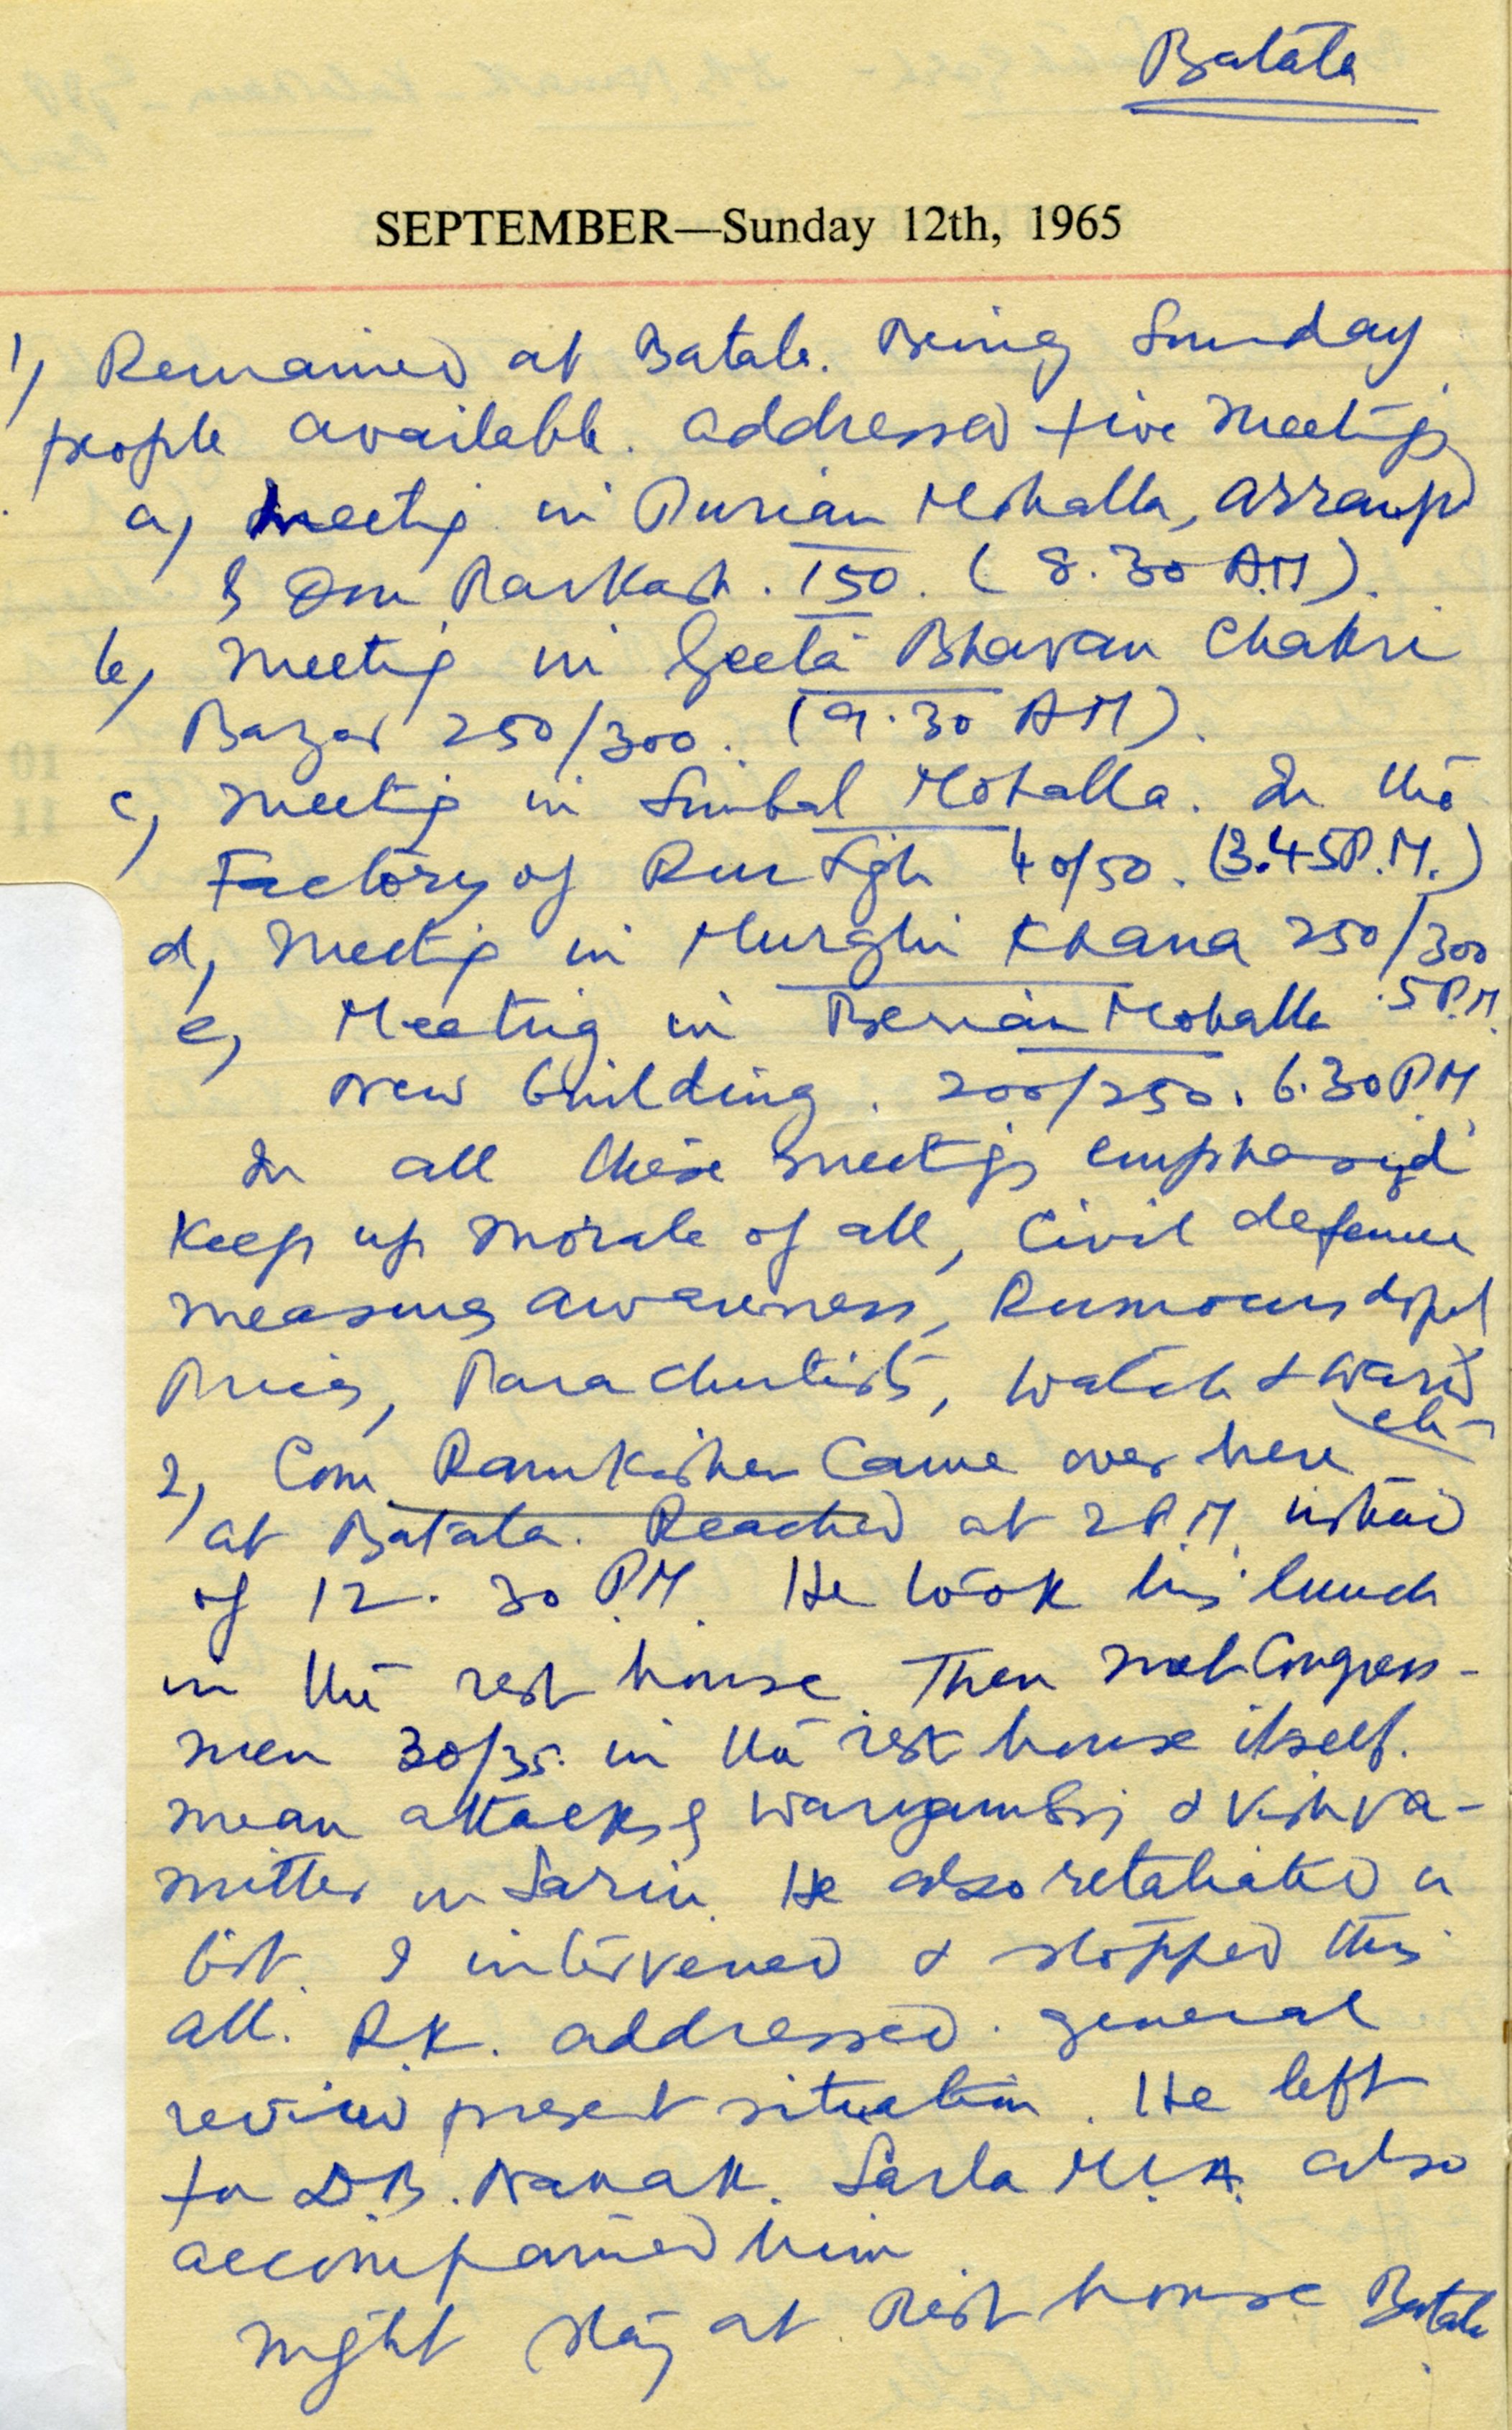 Batala
SEPTEMBER—Sunday 12th, 1965
1) Remained at Batala. Being Sunday
people available. addressed five meetings
a) meeting in Purian Mohalla, arranged
by Om Parkash. 150. (8.30 AM).
b) meeting in Geeta Bhavan Chakri
Bazar 250/300. (9.30 AM).
c) meeting in Simbal Mohalla. In the
Factory of Singh 40/50. (3.45 P.M.)
d) Meeting in Murghi Khana 250/300
5 P.M.
e) Meeting in Berian Mohalla
New building. 200/250. 6.30 PM
In all these meetings emphasized
Keep up morale of all, Civil defence
measures awareness, Rumours dispel
Prices, Parachutists, watch & ward
etc
2) Com Ram Kishen Came over here
at Batala. Reached at 2 P.M. instead
of 12.30 P.M. He took his lunch
in the rest house Then met Congress-
men 30/35. in the rest house itself.
mean attacks by & Vishva-
mitter on Sarin. He also retaliated a
bit. I intervened & stopped this
all. R.K. addressed. general
review present situation. He left
for D.B. Nanak. Sarla M.L.A. also
accompanied him
Night stay at Rest house Batala